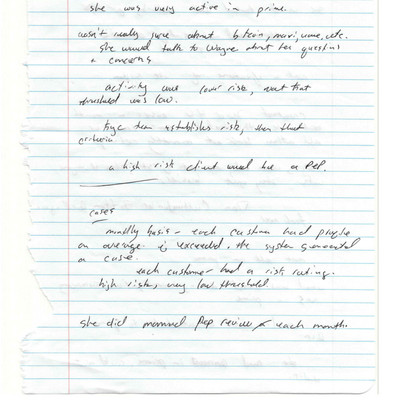 she was very active in prime.
wasn't really sure about
she would talk to Wayne about her questions
& concerns
activity was low risk, meant that
threshold was low.
kyc team establishes risk, then that
criteria
a high risk client would be a PEP.
cases
monthly basis - each customer had profile
on average. if exceeded, the system generated
a case.
each customer had a risk rating.
high risk, very low threshold
she did manual Pep review each month.